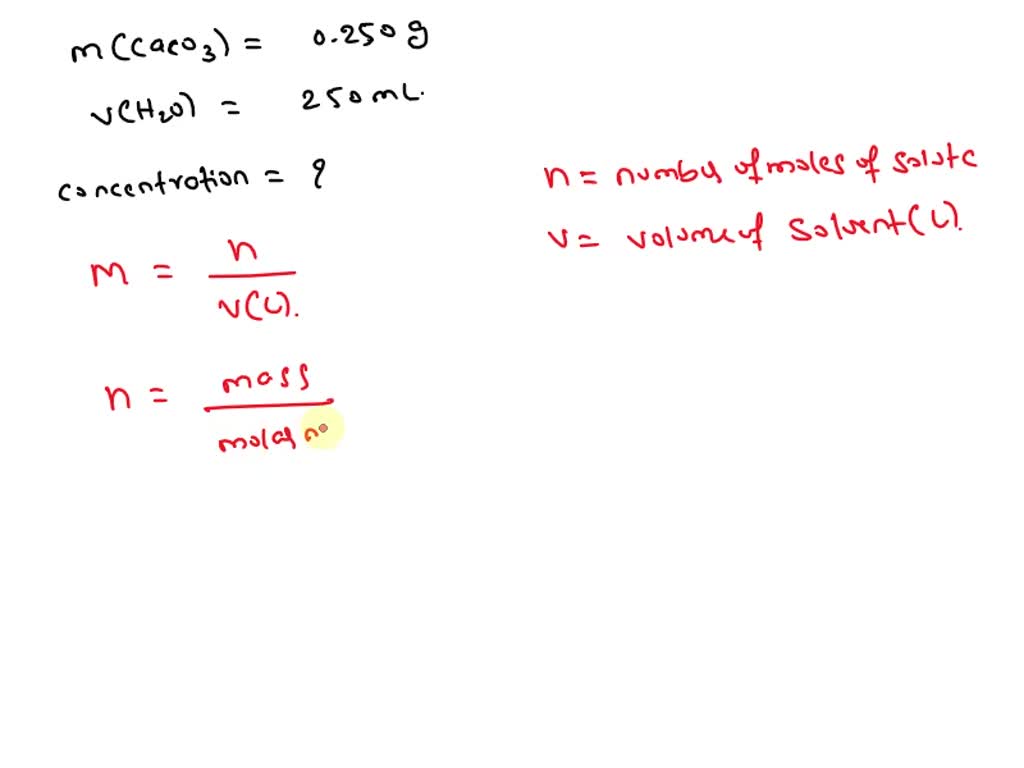 m(CaCO3) = 0.250 g
V(H2O) = 250 mL.
concentration = ?
M = n
V(L).
n = mass
molar
n = number of moles of solute
V = volume of solvent (L).